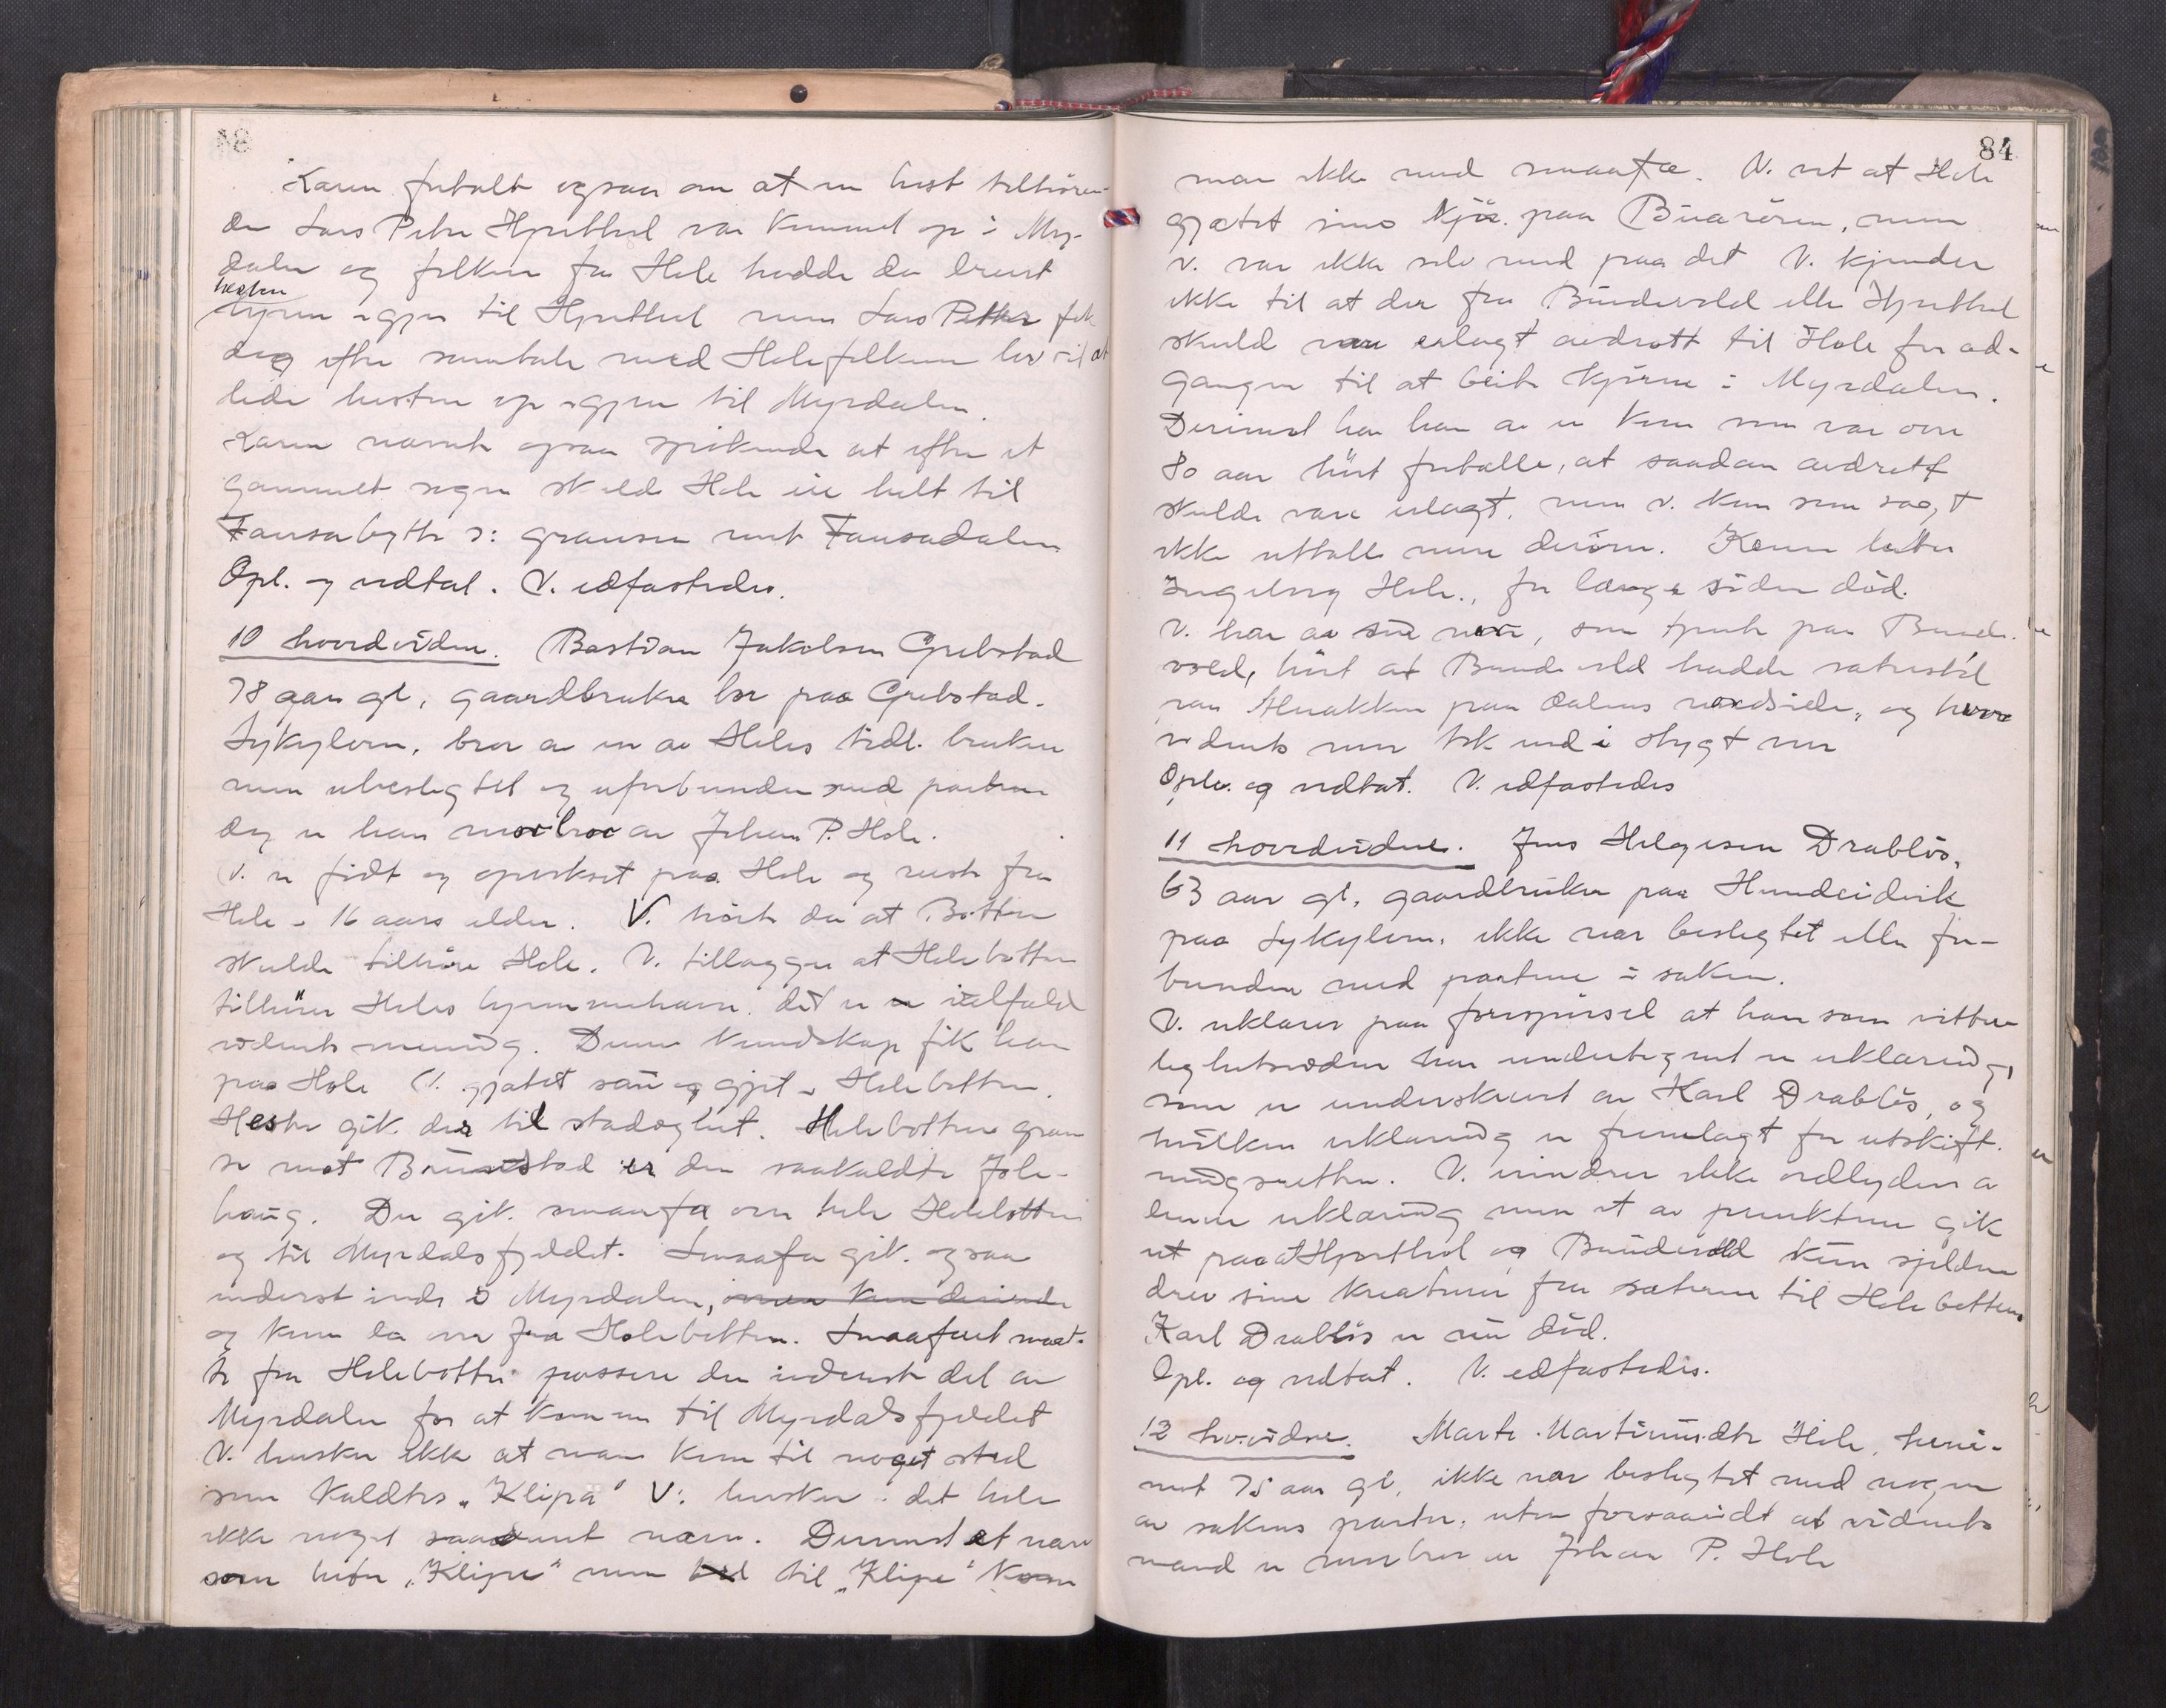 Karen fortalt ogsaa om at en hest tilhören-
de Lars Petter Hjorthol var kommet op i Myr-
dalen og folkene fra Hole hadde da brent
hesten
igjen til Hjorthol men Lars Petter fik
dog efter samtale med Holefolkene lov til at
lede hesten op igjen til Myrdalen.
Karen nævnte ogsaa spökende at efter et
gammelt sagn skulde Hole eie helt til
Fausabytte ɔ: grænsen mot Fausadalen
Opl. og vedtat. V. edfæstedes.
10 hovedvidne. Bastian Jakobsen Grebstad
78 aar gl, gaardbruker bor paa Grebstad.
Sykylven, bror av en av Holes tidl. brukere
men ubeslegtet og uforbunden med partene
dog er han morbror av Johan P. Hole.
V. er födt og opvokset paa Hole og reiste fra
Hole i 16 aars alder. V. hörte da at Botten
skulde tilhöre Hole. V. tillægger at Holebotten
tilhörer Holes hjemmehavn. det er ialfald
vidnets mening. Denne kundskap fik han
paa Hole V. gjætet sau og gjet i Holebotten.
Hester gik der til stadoghet. Holebottens græn
se mot Brunstad er den saakaldte Jole-
haug. Der gik smaafæ over hele Holebotten
og til Myrdalsfjeldet. Smaafæ gik ogsaa
inderst inde i Myrdalen, men kun derinde
og kom da over fra Holebotten. Smaafæet maat-
te fra Holebotten passere den inderste del av
Myrdalen for at komme til Myrdalsfjeldet
V. husker ikke at man kom til noget sted
som kaldtes "Klipa" V. husker i det hele
ikke noget saadant navn. Derimot et navn
som heter "Klipe" men til "Klipe" kom
84
man ikke med smaafæ. V. vet at Hole
gjætet sine kjör paa Buarören, men
V. var ikke selv med paa det V. kjender
ikke til at der fra Bundevold eller Hjorthol
skuld være erlagt avdrott til Hole for ad-
gangen til at beite kjörne i Myrdalen.
Derimot har han av en kone som var over
80 aar hört fortalle, at saadan avdrott
skulde være erlagt, men v. kan som sagt
ikke uttalle mere derom. Konen hette
Ingeborg Hole, for længe siden död.
V. har av sin mor, som tjente paa Bunde-
vold, hört at Bundevold hadde sæterstöl
paa Aluakken paa dalens nordside, og hvor
vidnets mor tok ind i stygt ver
Oplæ. og vedtat. V. edfæstedes
11 hovedvidne. Jens Helgesen Drablös,
63 aar gl, gaardbruker paa Hundeidvik
paa Sykylven, ikke nær beslegtet eller for-
bunden med partene i saken.
V. erklærer paa forespörsel at han som vitter-
lighetsvidne har undertegnet en erklæring,
som er underskrevet av Karl Drablös, og
hvilken erklæring er fremlagt for utskift-
ningsretten. V. erindrer ikke ordlyden av
denne erklæring men et av punktene gik
ut paa at Hjorthol og Bundevold kun sjelden
drev sine kreaturer fra sæterne til Holebotten.
Karl Drablös er nu död.
Opl. og vedtat. V. edfæstedes.
12 hov.vidne. Marte Martinusdtr Hole, heni-
mot 75 aar gl, ikke nær beslegtet med nogen
av sakens parter, uten forsaavidt at vidnets
mand er morbror av Johan P. Hole